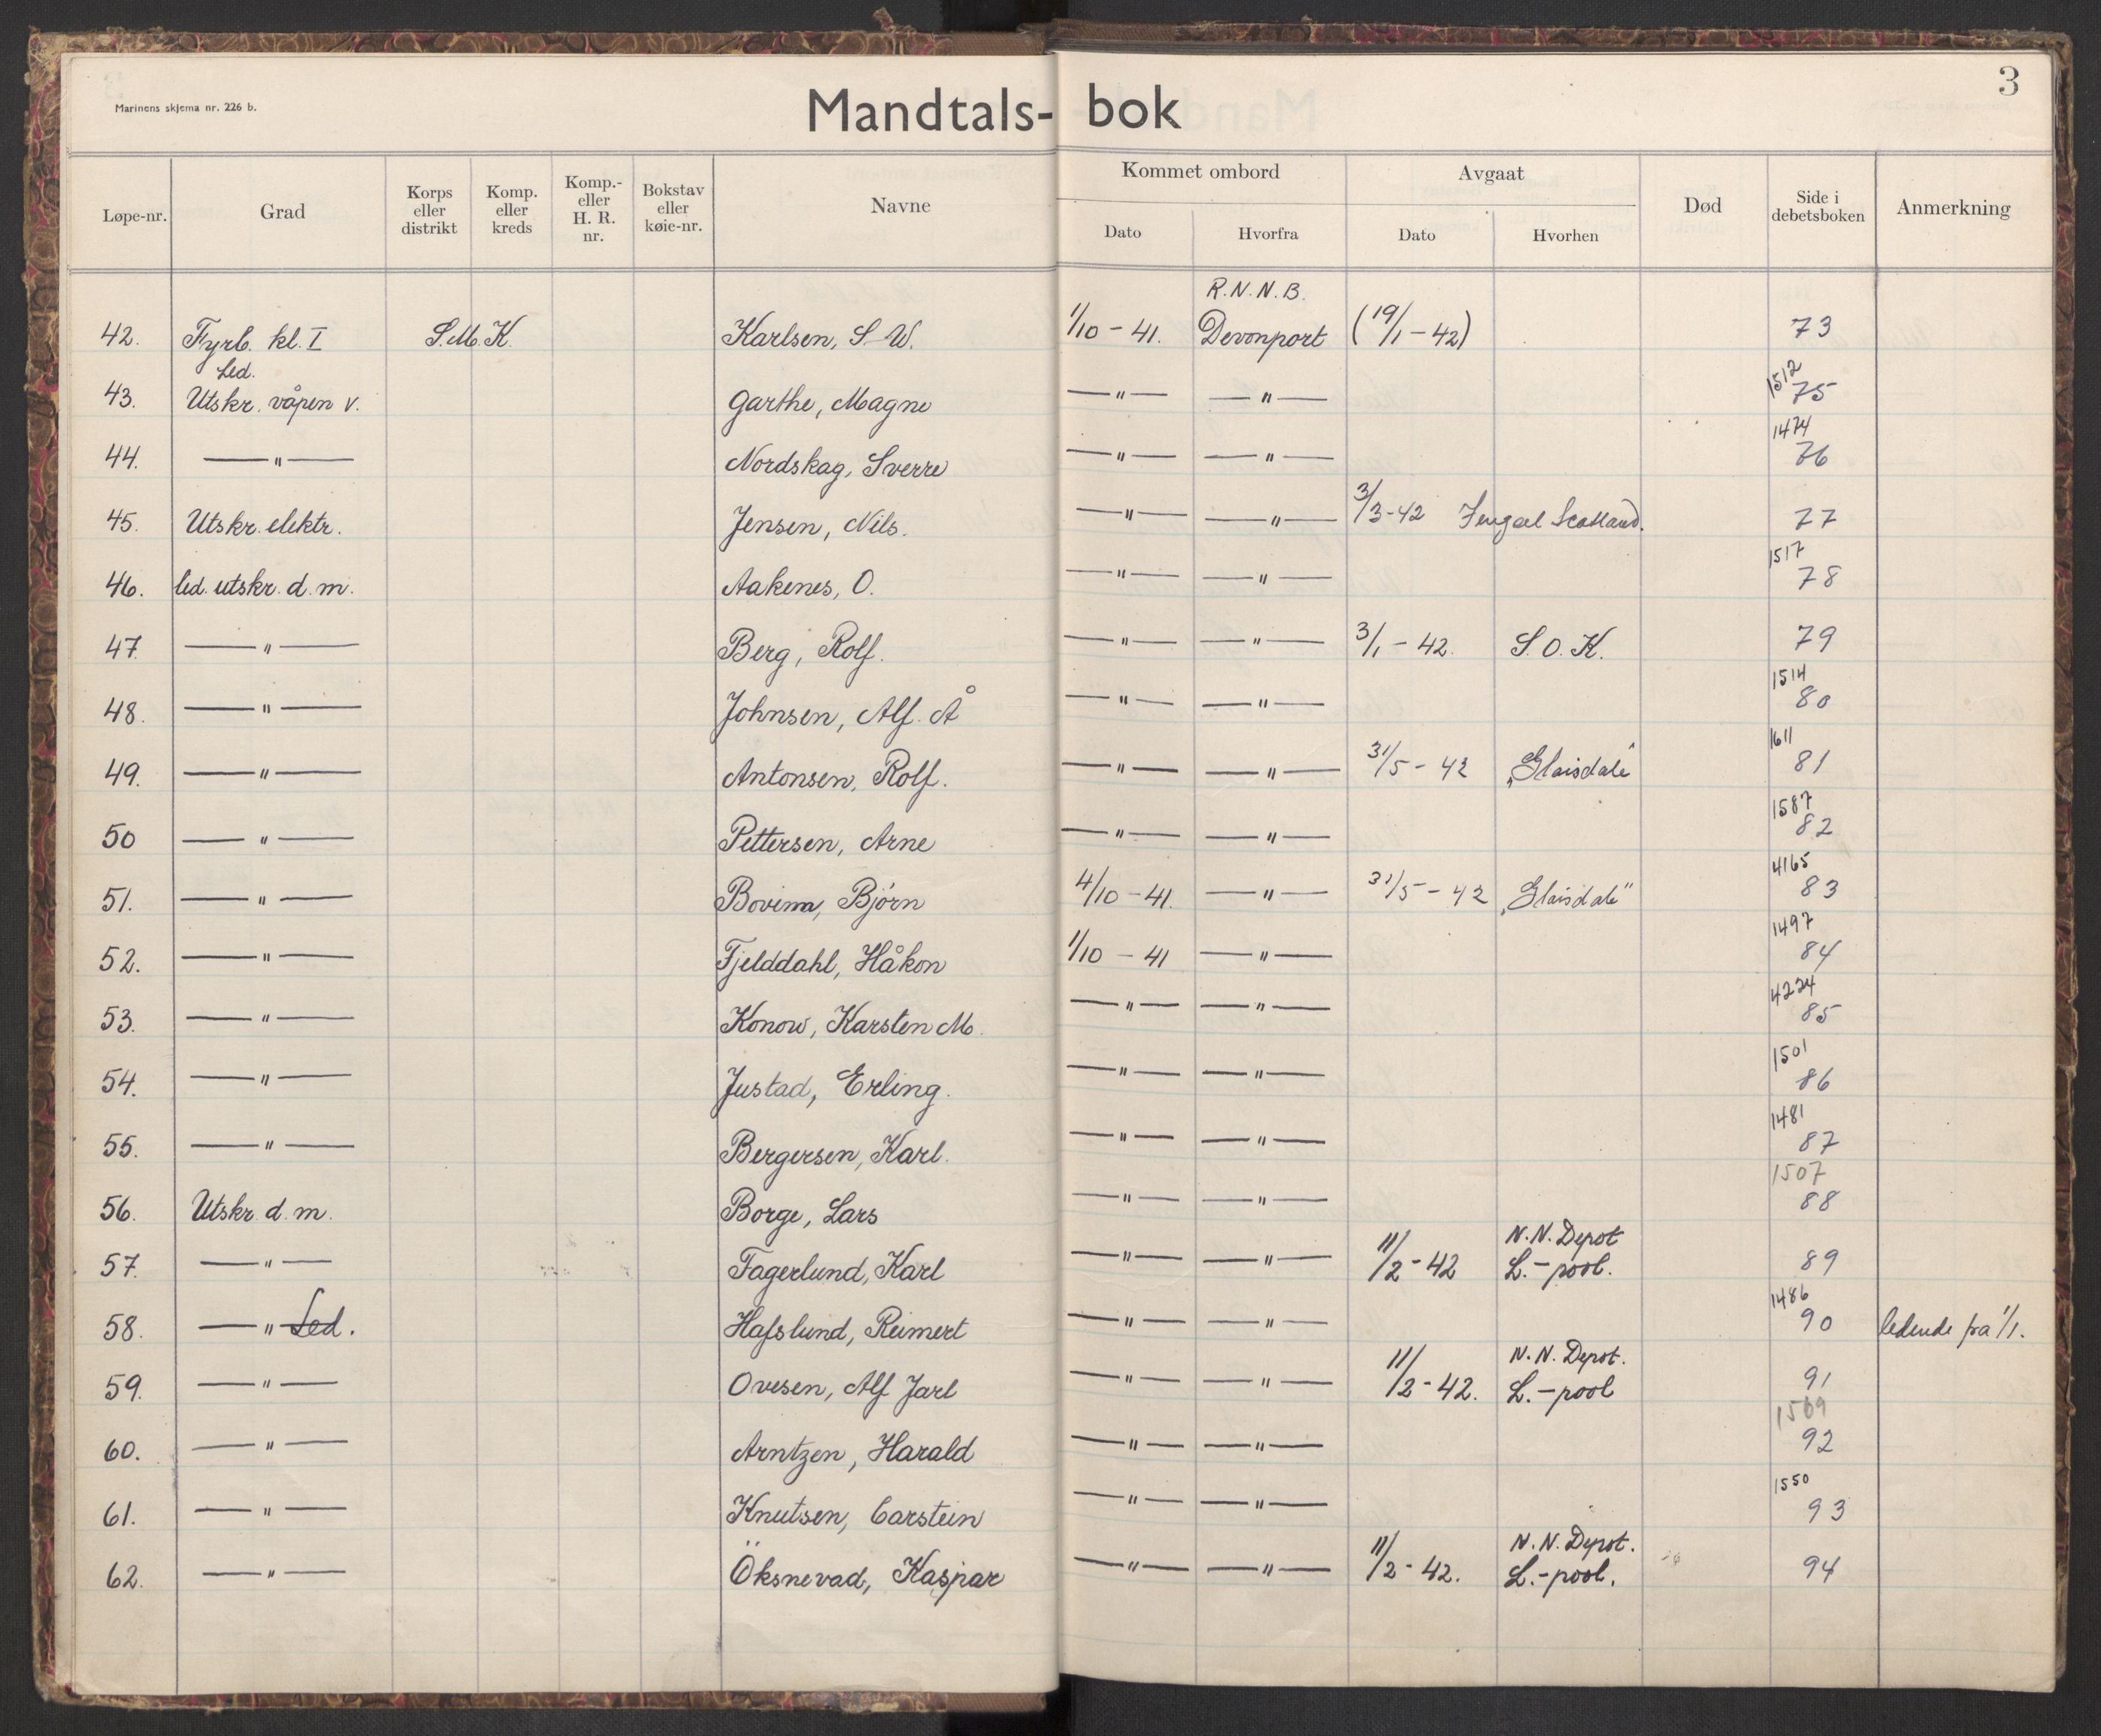 3
Marinens skjema nr. 226 b.
Mandtals- bok
Løpe-nr. Grad Korps eller distrikt Komp. eller kreds Komp.- eller H. R. nr. Bokstav eller køie-nr. Navne Kommet ombord Dato Hvorfra Avgaat Dato Hvorhen Død Side i debetsboken Anmerkning
R.N.N.B.
42. Fyrb. kl. I S.M.K. Karlsen, S. W. 1/10 – 41. Devonport (19/1 – 42) 73
Led. 1512
43. Utskr. våpen v. Garthe, Magne —"— —"— 75
1474
44. —"— Nordskag, Sverre —"— —"— 76
45. Utskr. elektr. Jensen, Nils. —"— —"— 3/3-42 Scotland. 77
1517
46. led. utskr. d. m. Aakenes, O. —"— —"— 78
47. —"— Berg, Rolf. —"— —"— 3/1 – 42. S. O. K. 79
1514
48. —"— Johnsen, Alf. Å —"— —"— 80
1611
49. —"— Antonsen, Rolf. —"— —"— 31/5 – 42 „Glaisdale" 81
1587
50 —"— Pettersen, Arne —"— —"— 82
4165
51. —"— Bovim, Bjørn 4/10 – 41. —"— 31/5 – 42 „Glaisdale" 83
1497
52. —"— Fjelddahl, Håkon 1/10 – 41 —"— 84
4224
53. —"— Konow, Karsten M. —"— —"— 85
1501
54. —"— Justad, Erling. —"— —"— 86
1481
55. —"— Bergersen, Karl. —"— —"— 87
1507
56. Utskr. d. m. Borge, Lars —"— —"— 88
N.N. Depot
57. —"— Fagerlund, Karl —"— —"— 11/2 - 42 L.-pool. 89
1486
58. —"— Led. Hafslund, Reimert —"— —"— 90 ledende fra 1/1.
N.N. Depot.
59. —"— Ovesen, Alf Jarl —"— —"— 11/2 - 42. L.-pool 91
1569
60. —"— Arntzen, Harald —"— —"— 92
1550
61. —"— Knutsen, Carstein —"— —"— 93
N.N. Depot.
62. —"— Öksnevad, Kaspar —"— —"— 11/2 - 42. L.-pool. 94